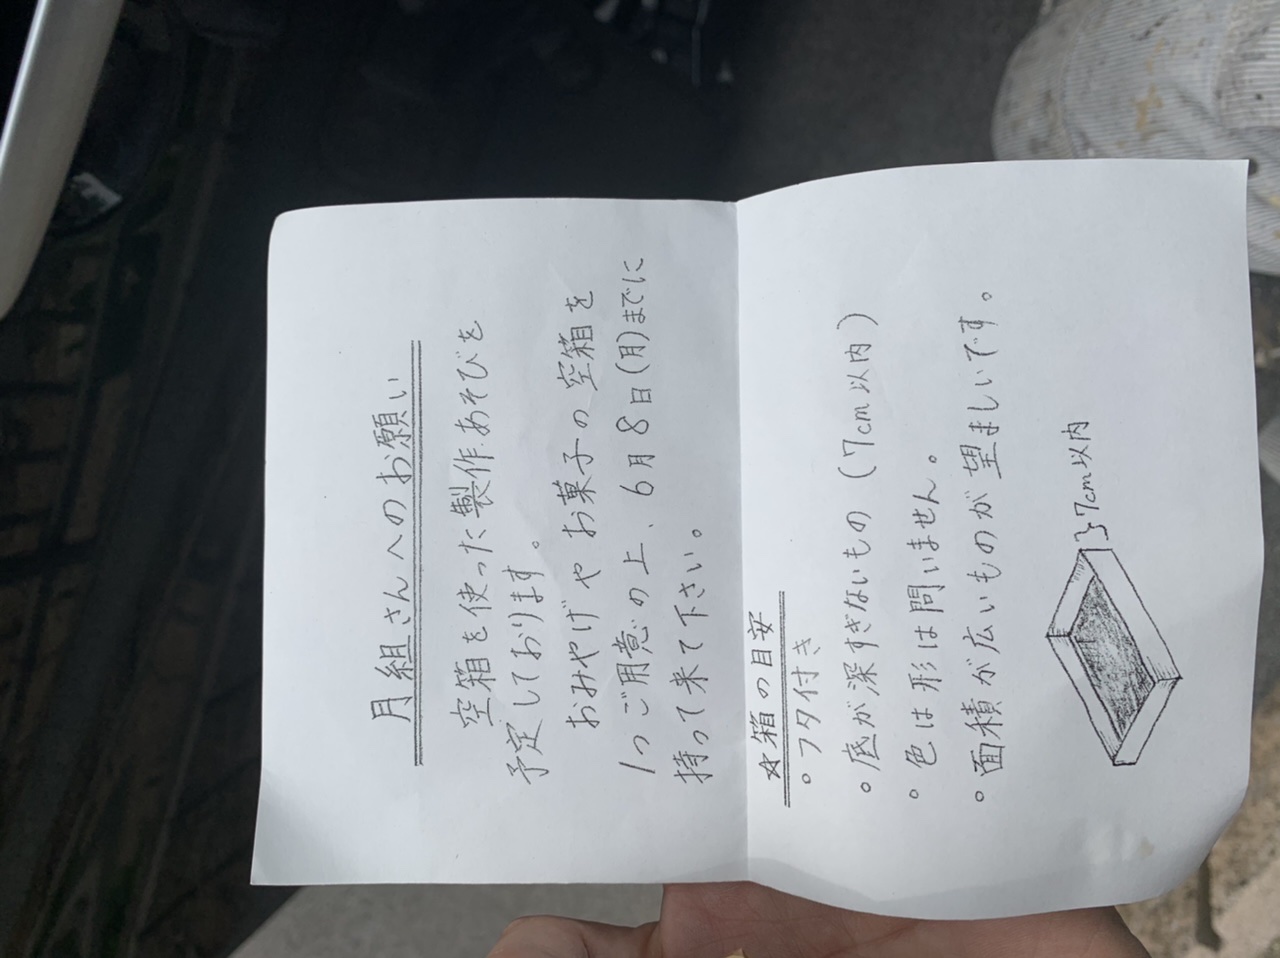 月組さんへのお願い
空箱を使った製作あそびを
予定しております。
おみやげやお菓子の空箱を
1つご用意の上、6月8日(月)までに
持って来て下さい。
☆箱の目安
。フタ付き
。底が深すぎないもの(7cm以内)
。色は形は問いません。
。面積が広いものが望ましいです。
7cm以内